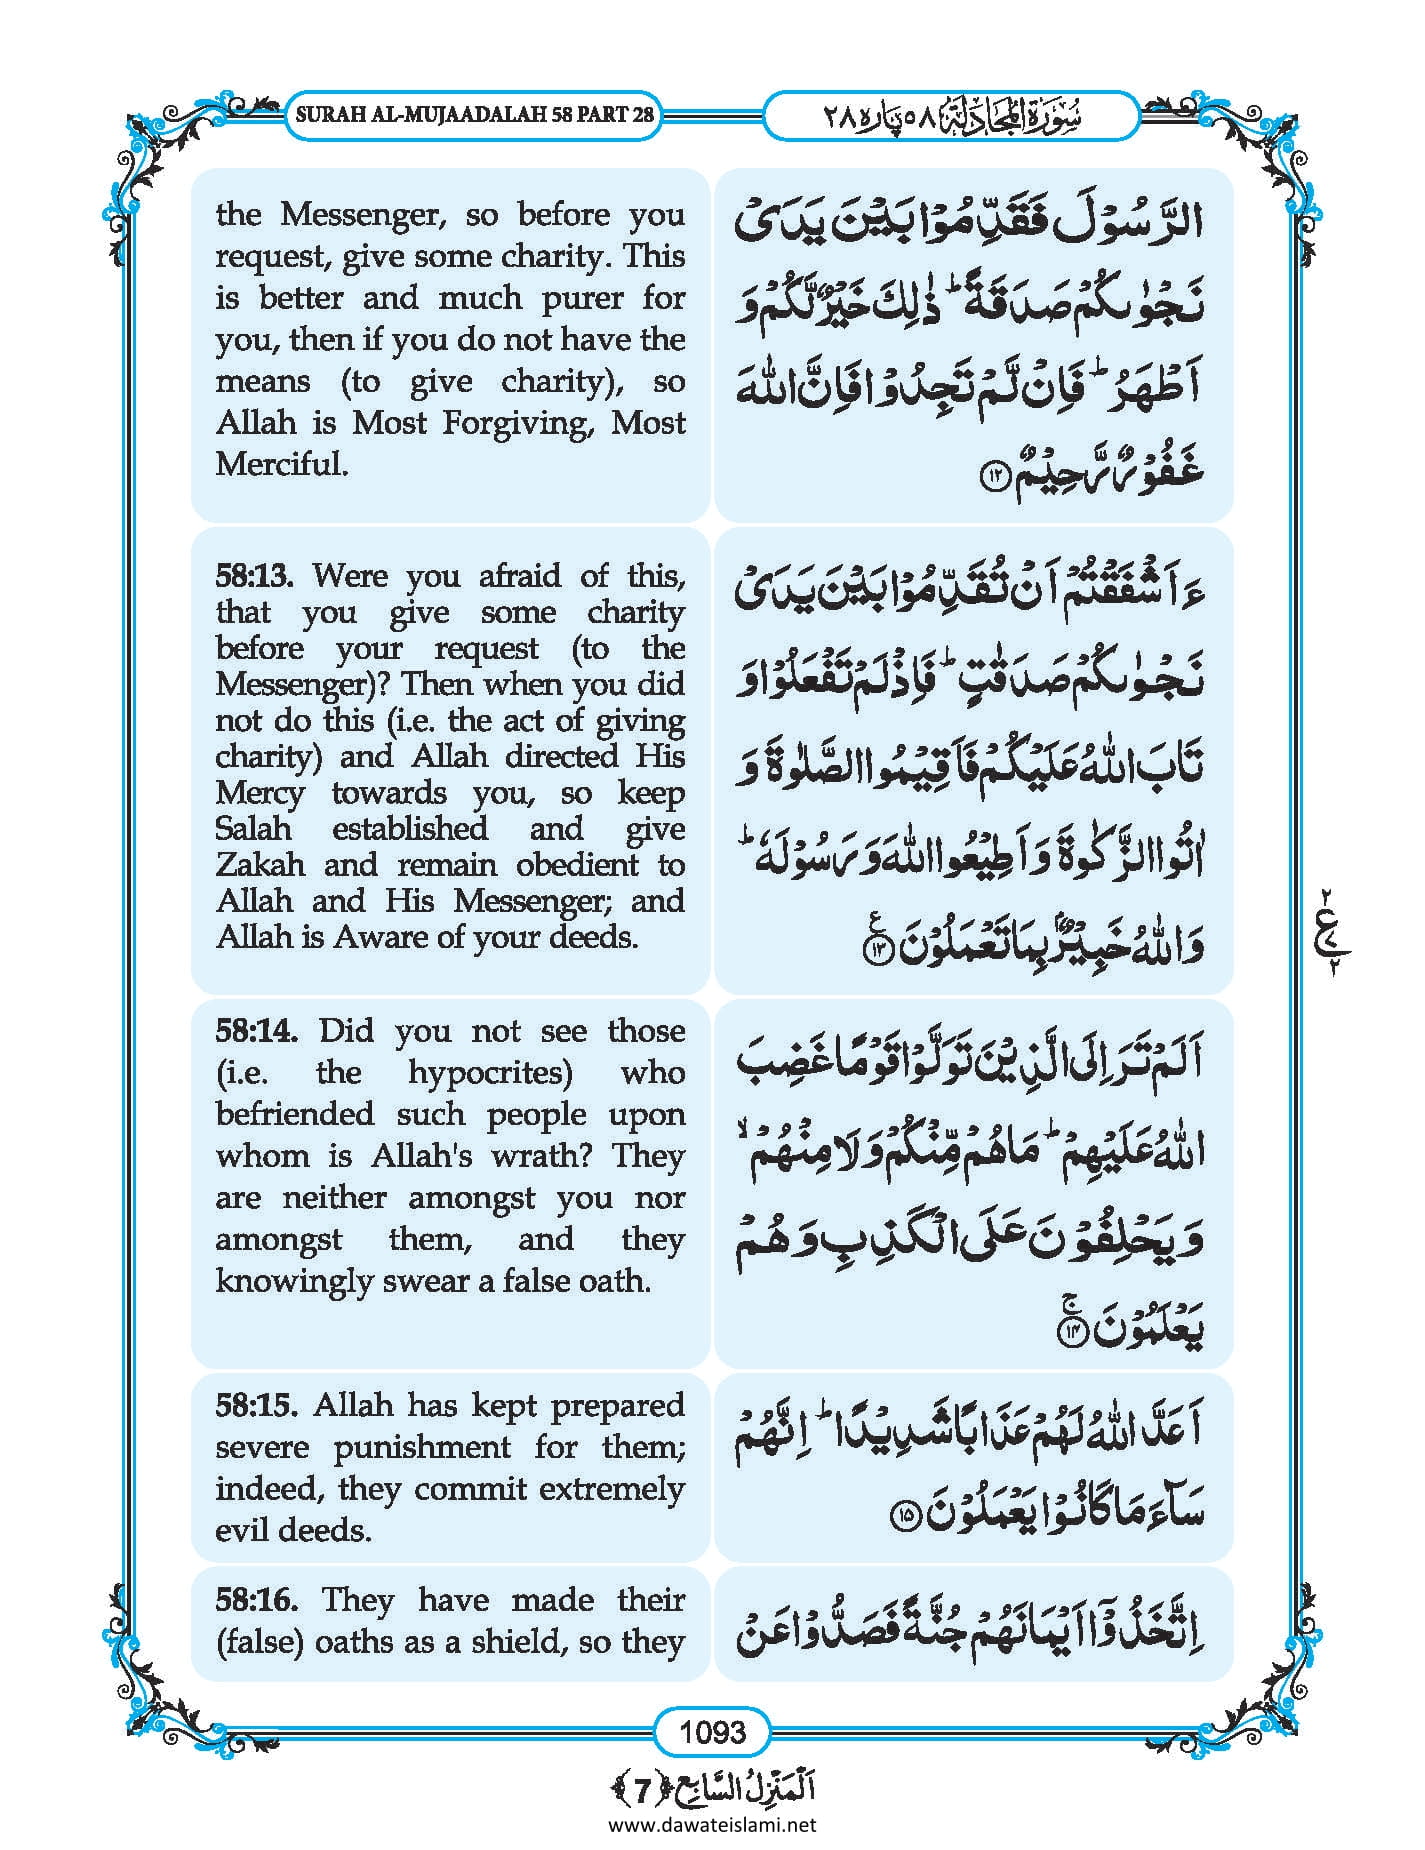 SURAH AL-MUJAADALAH 58 PART 28
سُوۡرَةُ الۡمُجَادَلَة ٥٨ پارہ ٢٨
the Messenger, so before you
request, give some charity. This
is better and much purer for
you, then if you do not have the
means (to give charity), so
Allah is Most Forgiving, Most
Merciful.
الرَّسُوۡلَ فَقَدِّمُوۡا بَیۡنَ یَدَیۡ
نَجۡوٰىکُمۡ صَدَقَةً ؕ ذٰلِكَ خَیۡرٌ لَّکُمۡ وَ
اَطۡهَرُ ؕ فَاِنۡ لَّمۡ تَجِدُوۡا فَاِنَّ اللّٰهَ
غَفُوۡرٌ رَّحِیۡمٌ ﴿۱۲﴾
58:13. Were you afraid of this,
that you give some charity
before your request (to the
Messenger)? Then when you did
not do this (i.e. the act of giving
charity) and Allah directed His
Mercy towards you, so keep
Salah established and give
Zakah and remain obedient to
Allah and His Messenger; and
Allah is Aware of your deeds.
ءَاَشۡفَقۡتُمۡ اَنۡ تُقَدِّمُوۡا بَیۡنَ یَدَیۡ
نَجۡوٰىکُمۡ صَدَقٰتٍ ؕ فَاِذۡ لَمۡ تَفۡعَلُوۡا وَ
تَابَ اللّٰهُ عَلَیۡکُمۡ فَاَقِیۡمُوا الصَّلٰوةَ وَ
اٰتُوا الزَّکٰوةَ وَ اَطِیۡعُوا اللّٰهَ وَ رَسُوۡلَهٗ ؕ
وَ اللّٰهُ خَبِیۡرٌۢ بِمَا تَعۡمَلُوۡنَ ﴿۱۳﴾ ع
٢
ع
٢
58:14. Did you not see those
(i.e. the hypocrites) who
befriended such people upon
whom is Allah's wrath? They
are neither amongst you nor
amongst them, and they
knowingly swear a false oath.
اَلَمۡ تَرَ اِلَی الَّذِیۡنَ تَوَلَّوۡا قَوۡمًا غَضِبَ
اللّٰهُ عَلَیۡهِمۡ ؕ مَا هُمۡ مِّنۡکُمۡ وَ لَا مِنۡهُمۡ ۙ
وَ یَحۡلِفُوۡنَ عَلَی الۡکَذِبِ وَ هُمۡ
یَعۡلَمُوۡنَ ﴿۱۴﴾ ج
58:15. Allah has kept prepared
severe punishment for them;
indeed, they commit extremely
evil deeds.
اَعَدَّ اللّٰهُ لَهُمۡ عَذَابًا شَدِیۡدًا ؕ اِنَّهُمۡ
سَآءَ مَا کَانُوۡا یَعۡمَلُوۡنَ ﴿۱۵﴾
58:16. They have made their
(false) oaths as a shield, so they
اِتَّخَذُوۡۤا اَیۡمَانَهُمۡ جُنَّةً فَصَدُّوۡا عَنۡ
1093
اَلۡمَنۡزِلُ السَّابِع ﴿7﴾
www.dawateislami.net